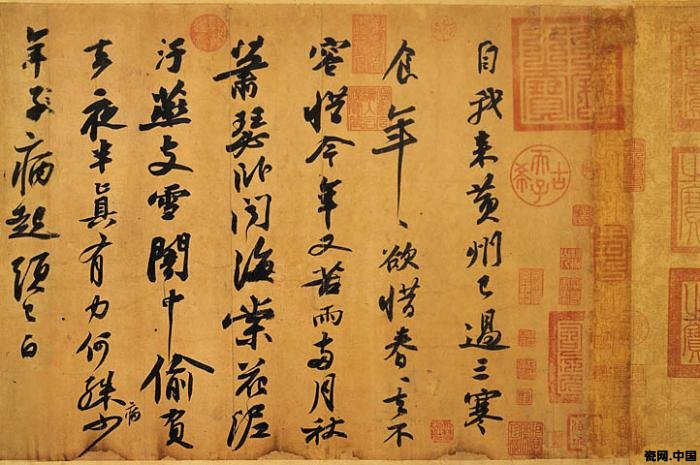 自我来黄州已過三寒
食年〻欲惜春〻去不
容惜今年又苦雨兩月秋
蕭瑟卧聞海棠花泥
汙燕支雪闇中偷負
去夜半真有力何殊少
病
年子病起頭已白
古希天子
瓷网.中国